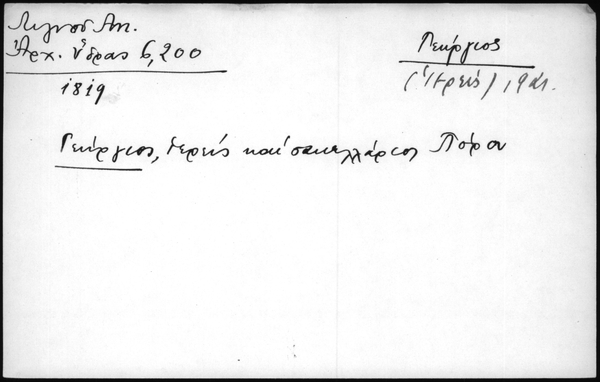 Λιγνοῦ Ἀπ.
Ἀρχ. Ὕδρας 6, 200
1819
Γεώργιος
(ἱερεύς) 1921.
Γεώργιος, ἱερεύς καί σακελλάριος Πόρου